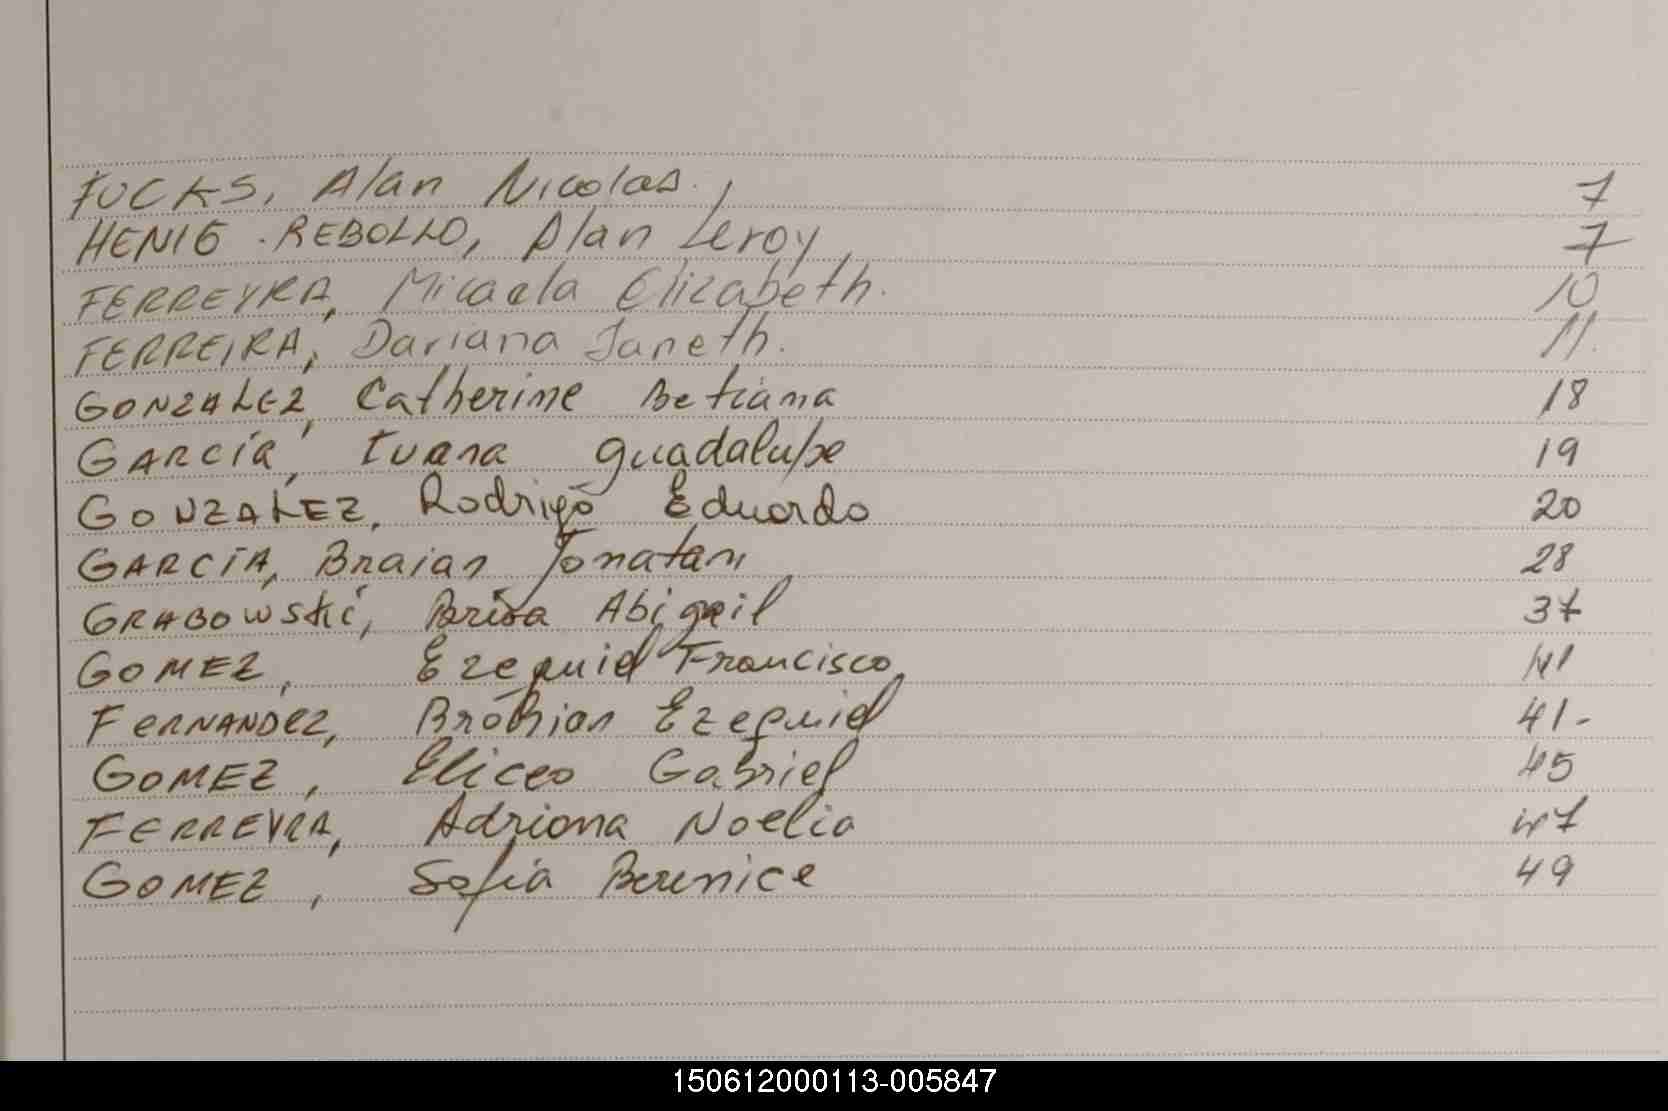 FUCKS, Alan Nicolas. 7
HENIG-REBOLLO, Alan Leroy 7
FERREYRA, Micaela Elizabeth. 10
FERREIRA, Dariana Janeth. 11.
GONZALEZ, Catherine Betiana 18
GARCÍA, Ivana guadalupe 19
GONZALEZ, Rodrigo Eduardo 20
GARCÍA, Braian Jonatan 28
GRABOWSKI, Brisa Abigail 37
GOMEZ, Ezequiel Francisco 41
FERNANDEZ, Ezequiel 41-
GOMEZ, Eliceo Gabriel 45
FERREYRA, Adriana Noelia 47
GOMEZ, Sofía Berenice 49
150612000113-005847